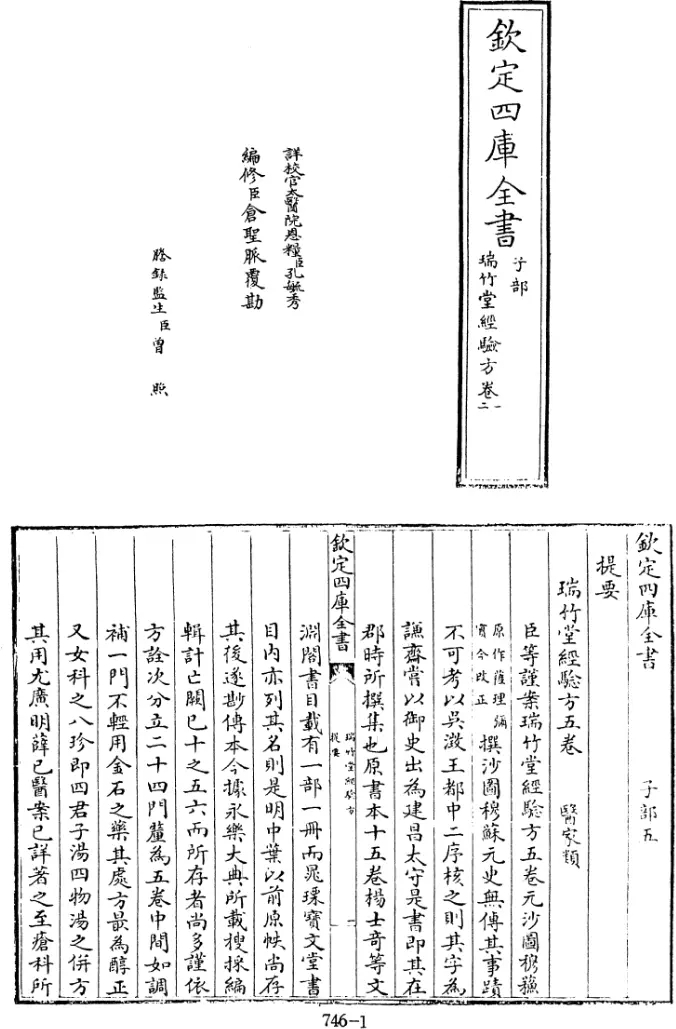 欽定四庫全書
子部
瑞竹堂經驗方卷一
二
詳校官太醫院恩糧臣孔毓秀
編修臣倉聖脈覆勘
謄錄監生臣曾照
欽定四庫全書 子部五
提要
瑞竹堂經驗方五卷 醫家類
臣等謹案瑞竹堂經驗方五卷元沙圖穆蘇
原作薩理彌
實今改正
撰沙圖穆蘇元史無傳其事蹟
不可考以吳澂王都中二序核之則其字為
謙齋嘗以御史出為建昌太守是書即其在
郡時所撰集也原書本十五卷楊士竒等文
欽定四庫全書
瑞竹堂經驗方
提要
一
淵閣書目載有一部一冊而晁瑮寶文堂書
目内亦列其名則是明中葉以前原帙尚存
其後遂尠傳本今據永樂大典所載搜採編
輯計亡闕已十之五六而所存者尚多謹依
方詮次分立二十四門釐為五卷中間如調
補一門不輕用金石之藥其處方最為醇正
又女科之八珍即四君子湯四物湯之併方
其用尤廣明薛已醫案已詳著之至瘡科所
746-1